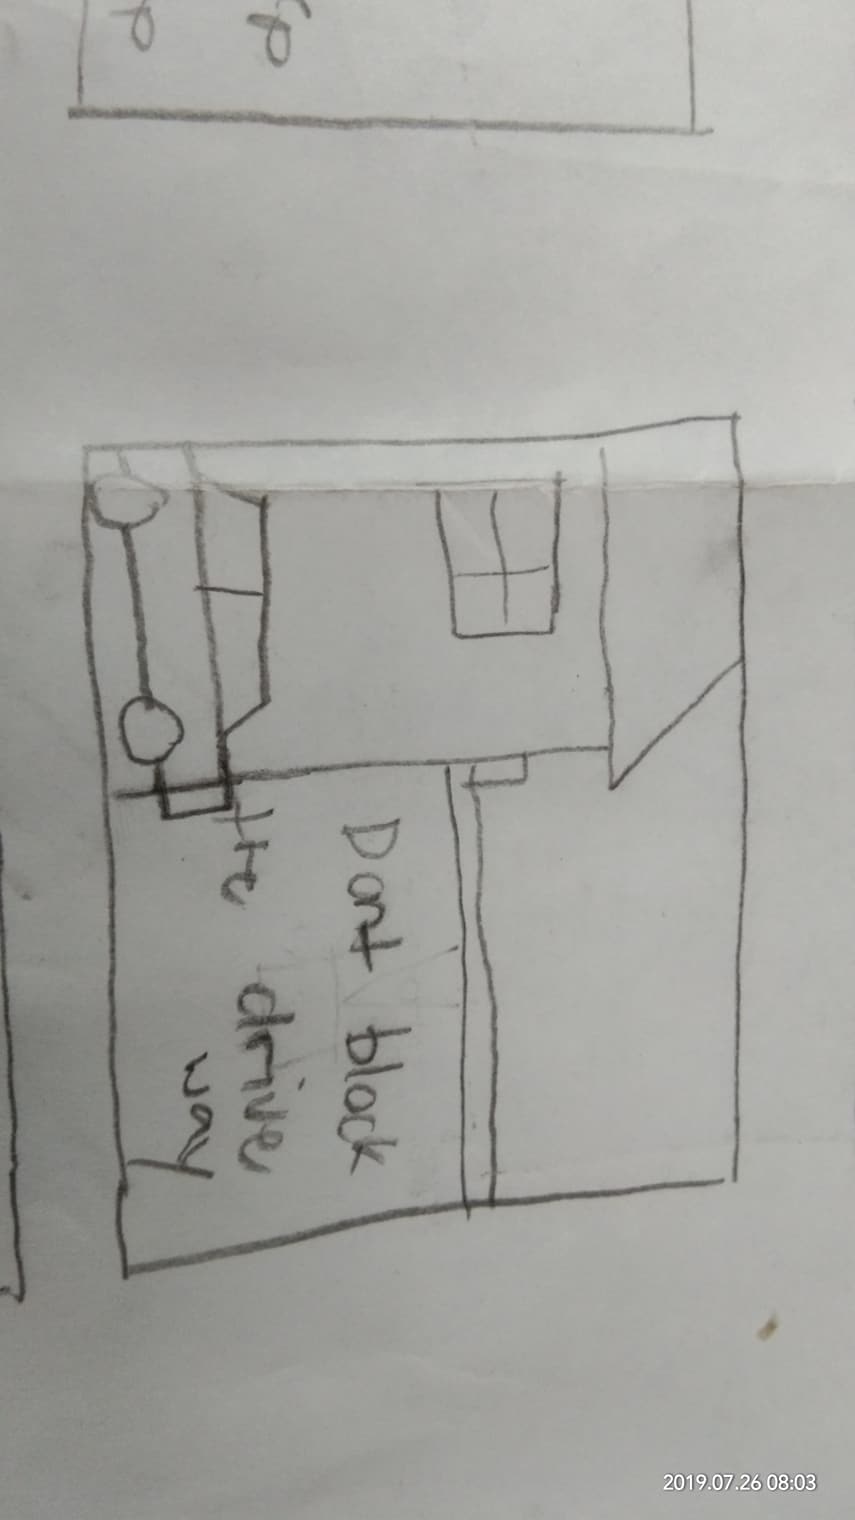 Dont block
the drive
way
2019.07.26 08:03